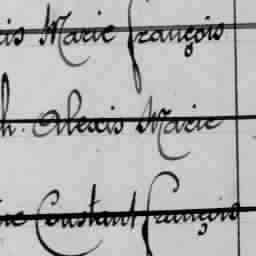 is Marie françois
h. Alexis Marie
ne Constant françois